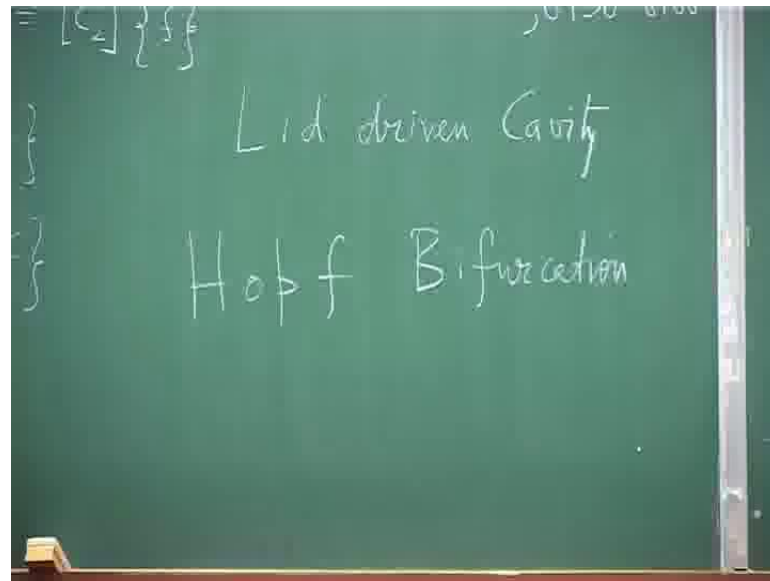 ≡ [C₂] {f}
Lid driven Cavity
}
Hopf Bifurcation
}